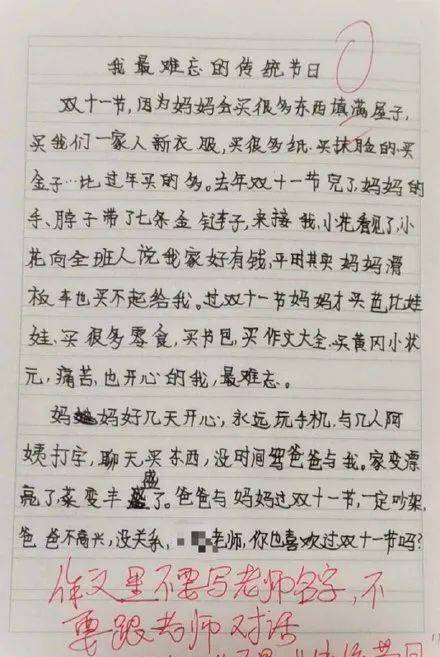 我最难忘的传统节日
双十一节,因为妈妈会买很多东西填满屋子,
买我们一家人新衣服,买很多纸、买抹脸的、买
金子…比过年买的多。去年双十一节完了,妈妈的
手、脖子带了七条金链子,来接我,小花看见了,小
花向全班人说我家好有钱,平时其实妈妈滑
板车也买不起给我。过双十一节妈妈才买芭比娃
娃、买很多零食,买书包,买作文大全、买黄冈小状
元,痛苦,也开心的我,最难忘。
妈妈好几天开心,永远玩手机,与几人阿
姨打字,聊天,买东西,没时间骂爸爸与我。家变漂
亮了,菜变丰盛了。爸爸与妈妈过双十一节,一定吵架,
爸爸不高兴,没关系,老师,你也喜欢过双十一节吗?
作文里不要写老师名字,不
要跟老师对话